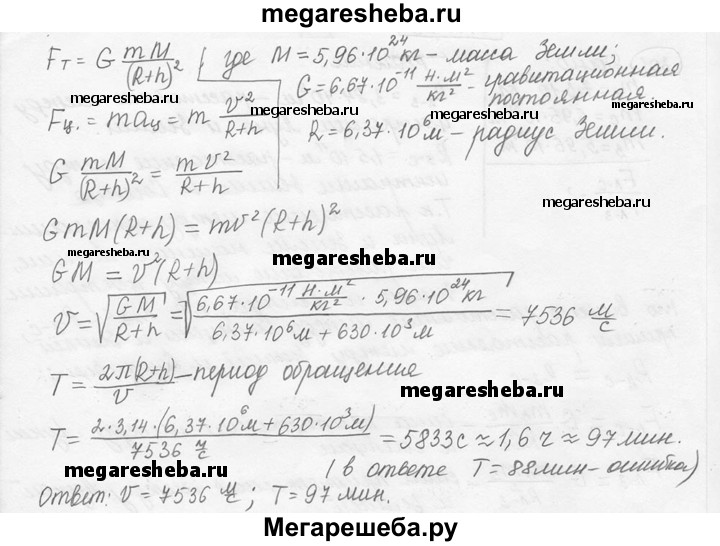 megaresheba.ru
Fт = G mM/(R+h)² где M = 5,96·10²⁴ кг - масса Земли;
G = 6,67·10⁻¹¹ Н·м²/кг² - гравитационная
постоянная.
megaresheba.ru
megaresheba.ru
Fц. = maц = m v²/(R+h) R = 6,37·10⁶ м - радиус Земли.
G mM/(R+h)² = mv²/(R+h)
megaresheba.ru
GmM(R+h) = mv²(R+h)²
megaresheba.ru
megaresheba.ru
GM = v²(R+h)
v = √(GM/(R+h)) = √((6,67·10⁻¹¹ Н·м²/кг² · 5,96·10²⁴ кг)/(6,37·10⁶ м + 630·10³ м)) = 7536 м/с
T = 2π(R+h)/v - период обращения
megaresheba.ru
T = 2·3,14·(6,37·10⁶ м + 630·10³ м)/(7536 м/с) = 5833 с ≈ 1,6 ч ≈ 97 мин.
megaresheba.ru
(в ответе T = 88 мин - ошибка)
Ответ: v = 7536 м/с; T = 97 мин.
Мегарешеба.ру